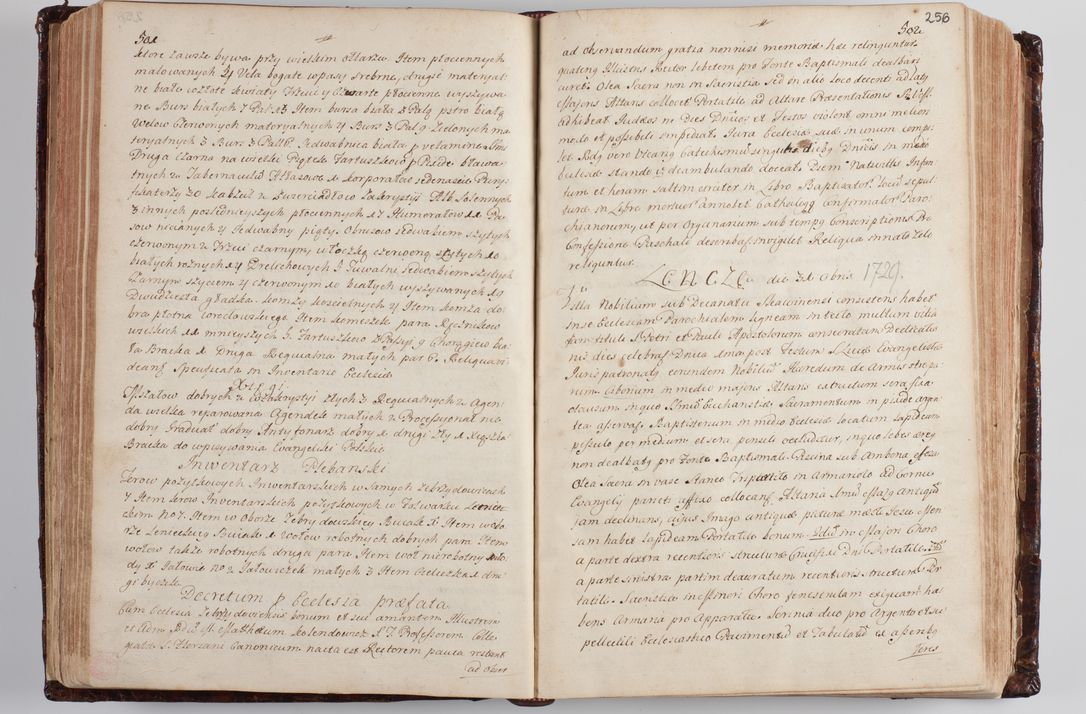 301
ktore zawsze bywa przy wielkim ołtarzu. Item płociennych
malowanych 4 Vela bogate w pasy srebrne, drugie materyal
ne białe w żołte kwiaty Trzeci y Czwarte płocienne wyszywa
ne Burs białych 7 Pal 13 Item bursa biała 3 Palą pstro białą
Welow Czerwonych materyalnych 4 Burs 3 Pal 9 Zielonych ma
teryalnych 3 Burs 3 Jedwabnica biała
Druga czarna na wielki Piątek
tnych 2 Tabernaculu Atłasowe 1 korporałow jedenascie Puryf
fikaterzy 30 do Zakrystyi Alb
3 innych poslednieyszych płociennych 12 Humerałow 12 Pa
sow nicianych 4 Jedwabny piąty. Obrusow jedwabiem szytych
czerwonym 2 Trzeci czarnym, włoczką czerwoną szytych 10
białych rożnych 14 Drelichowych 5 Tuwalni Jedwabiem szytych
Czarnym szyciem 4 czerwonym 10 białych wyszywanych 19
Dwudziesta gładka. komży koscielnych 4 Item komża do
bra płotna wrocławskiego Item komeszek para. Ręcznikow
wielkich 12 mnieyszych 5 Fartuszkow 9 Chorągiew bia
ła Bracka 1 Druga Requialna małych par 6. Reliquari
Specificata in Inventario Ecclesiæ
Xięgi
Mszałow dobrych 2 złych 3 Requialnych 2 Agen
da wielka reparowana Agendele małych 2 Processyonał nie
dobry Graduał dobry Antyfonarz dobry 1 drugi zły 1 Xiąszka
Bracka do wpisywania Ewangeliki Polskie
Inwentarz Plebanski
Krow pożytkowych Inwentarskich w samych Zebrzydowicach
7 Item krow Inwentarskich pożytkowych w Folwarku
No 7. Item w Oborze Zebrzydowskiey Buiak 1 Item w obo
rze Buiak 1 Wołow robotnych dobrych para Item
wołow także robotnych druga para Item woł nierobotny mło
dy 1 Jałowic No 2 Jałowiczek małych 3 Item Cieliczka 1 dru
gi byczek
Decretum p Ecclesia præfata
Cum Ecclesia Zebrzydoviensis bonum et sui amantem Illustrem
et Adm Rdum Matthæum Kolendowicz S T Professorem Colle
giatæ S. Floriani Canonicum nacta est Rectorem pauca restant
ad obser
256
302
ad observandum gratia nonnisi memoriæ hæc relinquntur.
quatenq Illustris Rector lebetem pro Fonte Baptismali dealbari
curet. Olea Sacra non in Sacristia sed in alio loco decenti ad latq
Majoris Altaris collocet Portatile ad Altare Præsentationis
adhibeat Judæos ne Dies Dnicos et Festos violent omni meliori
modo et possibili impediat. Jura Ecclesiæ suæ in unum compi
let Rdq vero Vicarq Catechismum singulis diebq Dnicis in medio
Ecclesiæ stando et deambulando doceat, Diem Nativitatis Infan
tum et horam saltim circiter in Libro Baptisator Locum sepul
turæ in Libro mortuor annotet Cathalogq Confirmator Paro
chianorum, ut per Organarium sub tempq Conscriptionis Pro
Confessione Paschali describat invigilet Reliqua innato Zelo
relinquntur.
LENCZE die 31 Obris 1729.
Villa Nobilium sub Decanatu Skavinensi consistens habet
in se Ecclesiam Parochialem ligneam in tecto multum
sub titulo S. Petri et Pauli Apostolorum consecratam Dedicatio
nis dies celebrat Dnica ima post Festum S. Lucæ Evangelistæ
Juris patronatq eorundem Nobilium Hæredum de Armis strepi
num. Ciborium in medio majoris Altaris extructum sera
clausum in quo Smum Eucharistiæ Sacramentum in pixide argen
tea asservat. Baptisterium in medio Ecclesiæ locatum lapideum
pessulo per medium et sera pensili occluditur, in quo lebes æreq
non dealbatq pro Fonte Baptismali. Piscina sub Ambona
Olea Sacra in vase staneo Tripartito in Armariolo ad Cornu
Evangelij parieti affixo collocant. Altaria Imum Majq antiquum
jam declinans, cujus Imago antiquæ picturæ
sam habet lapideam Portatile bonum. 2dum in Majori Choro
a parte dextra recentioris structuræ Crucifixi Dni Portatile 3tium
a parte sinistra partim deauratum recentioris structuræ Por
tatile. Sacristia in Minori Choro fenestrulam exiguam ha
bens Armaria pro Apparatu. Scrinia duo pro Argento et su
pellectili Ecclesiastico Pavimentum et Tabulatum ex asserbq